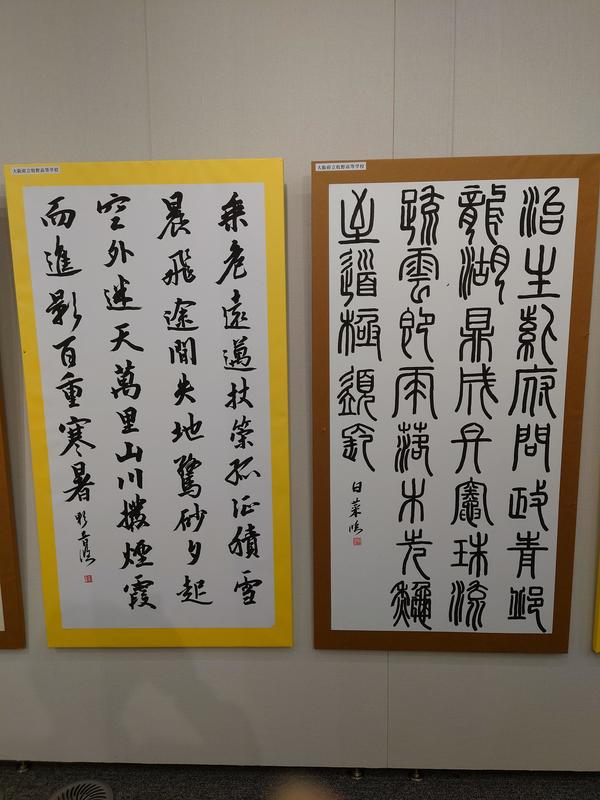 大阪府立牧野高等学校
治生紫府問政青邱
龍湖鼎成丹竈珠流
疏雲即雨落木先秋
至道極須
大阪府立牧野高等学校
乗危遠邁杖策孤征積雪
晨飛途間失地驚砂夕起
空外迷天萬里山川撥煙霞
而進影百重寒暑